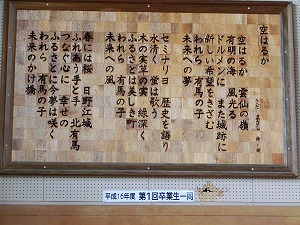 空はるか
空はるか 雲仙の嶺
有明の海 風光る
ドルメンに また城跡に
新しい希望をきざむ
われら 有馬の子
未来への夢
セミナリヨ 歴史を語り
水清く 蛍は歌う
木の実 草の実 緑深く
ふるさとは美しき町
われら 有馬の子
未来への風
春には桜 日野江城
ふれあう手と手 北有馬
つなぐ心に 幸せの
ふるさとに今夢は咲く
われら 有馬の子
未来のかけ橋
平成16年度 第1回卒業生一同